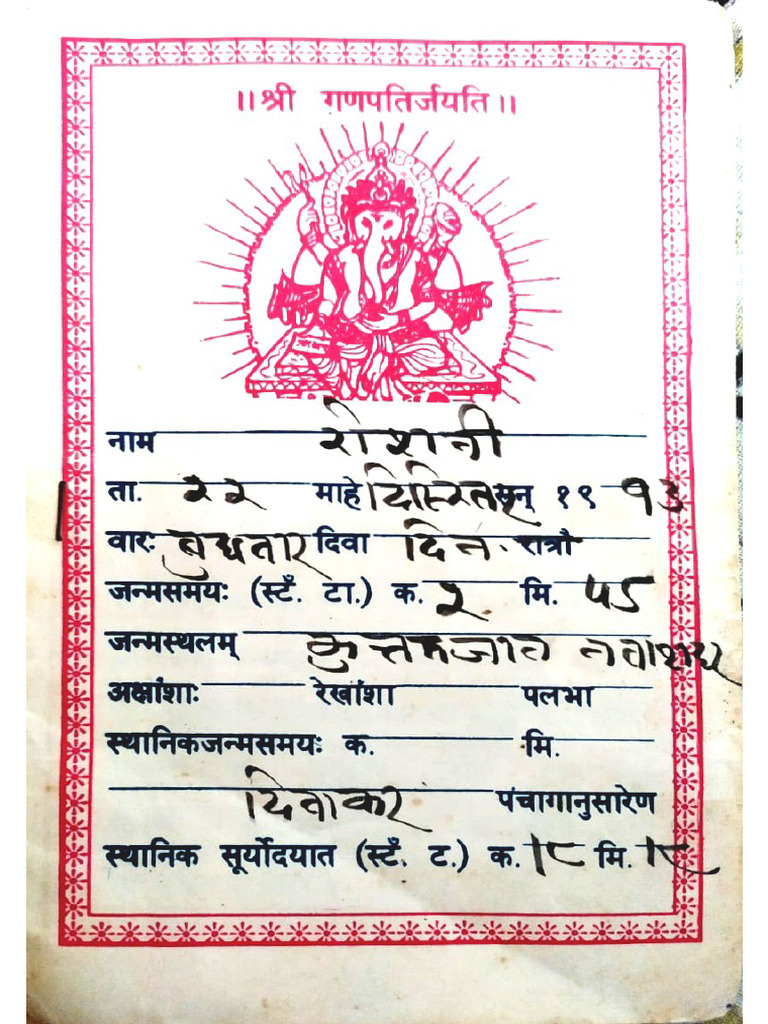 ।।श्री गणपतिर्जयति।।
नाम रोशनी
ता. २२ माहे सन् १९ ९३
वारः बुधवार दिवा दिन. रात्रौ
जन्मसमयः (स्टँ. टा.) क. २ मि. ५५
जन्मस्थलम्
अक्षांशाः रेखांशा पलभा
स्थानिकजन्मसमयः क. मि.
दिवाकर पंचागानुसारेण
स्थानिक सूर्योदयात (स्टँ. ट.) क. १८ मि. १९